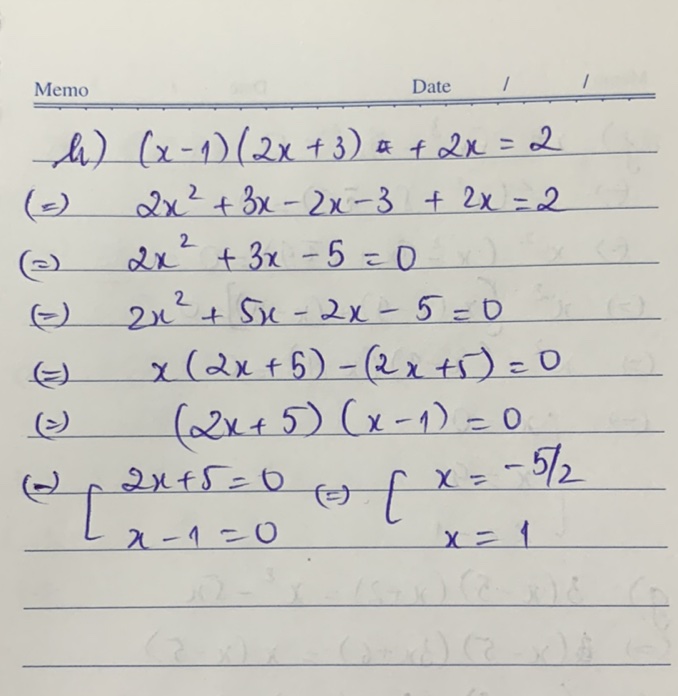 Memo Date / /
h) (x-1)(2x+3) + 2x = 2
(=) 2x² + 3x - 2x - 3 + 2x = 2
(=) 2x² + 3x - 5 = 0
(=) 2x² + 5x - 2x - 5 = 0
(=) x(2x+5) - (2x+5) = 0
(=) (2x+5)(x-1) = 0
(=) [ 2x+5 = 0 (=) [ x = -5/2
x - 1 = 0 x = 1